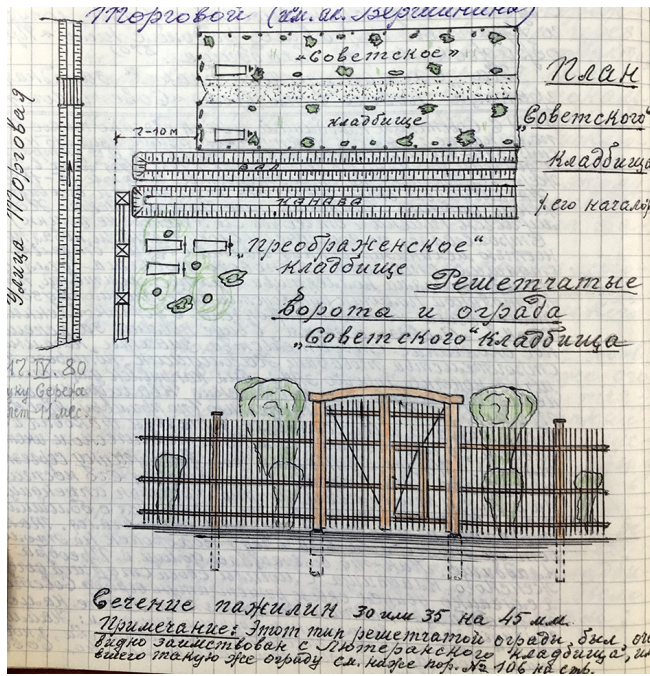 Торговой (им. ак. Вершинина)
Улица Торговая
„Советское"
кладбище
План
„Советского"
кладбища
7-10 м
вал
канава
у его начала
„Преображенское"
кладбище
Решетчатые
ворота и ограда
„Советского" кладбища
17.IV.80
Сережа
лет 11 мес.
Сечение пажилин 30 или 35 на 45 мм.
Примечание: Этот тип решетчатой ограды был
видно заимствован с „Лютеранского кладбища",
вшего такую же ограду см. ниже пор. № 106 на стр.